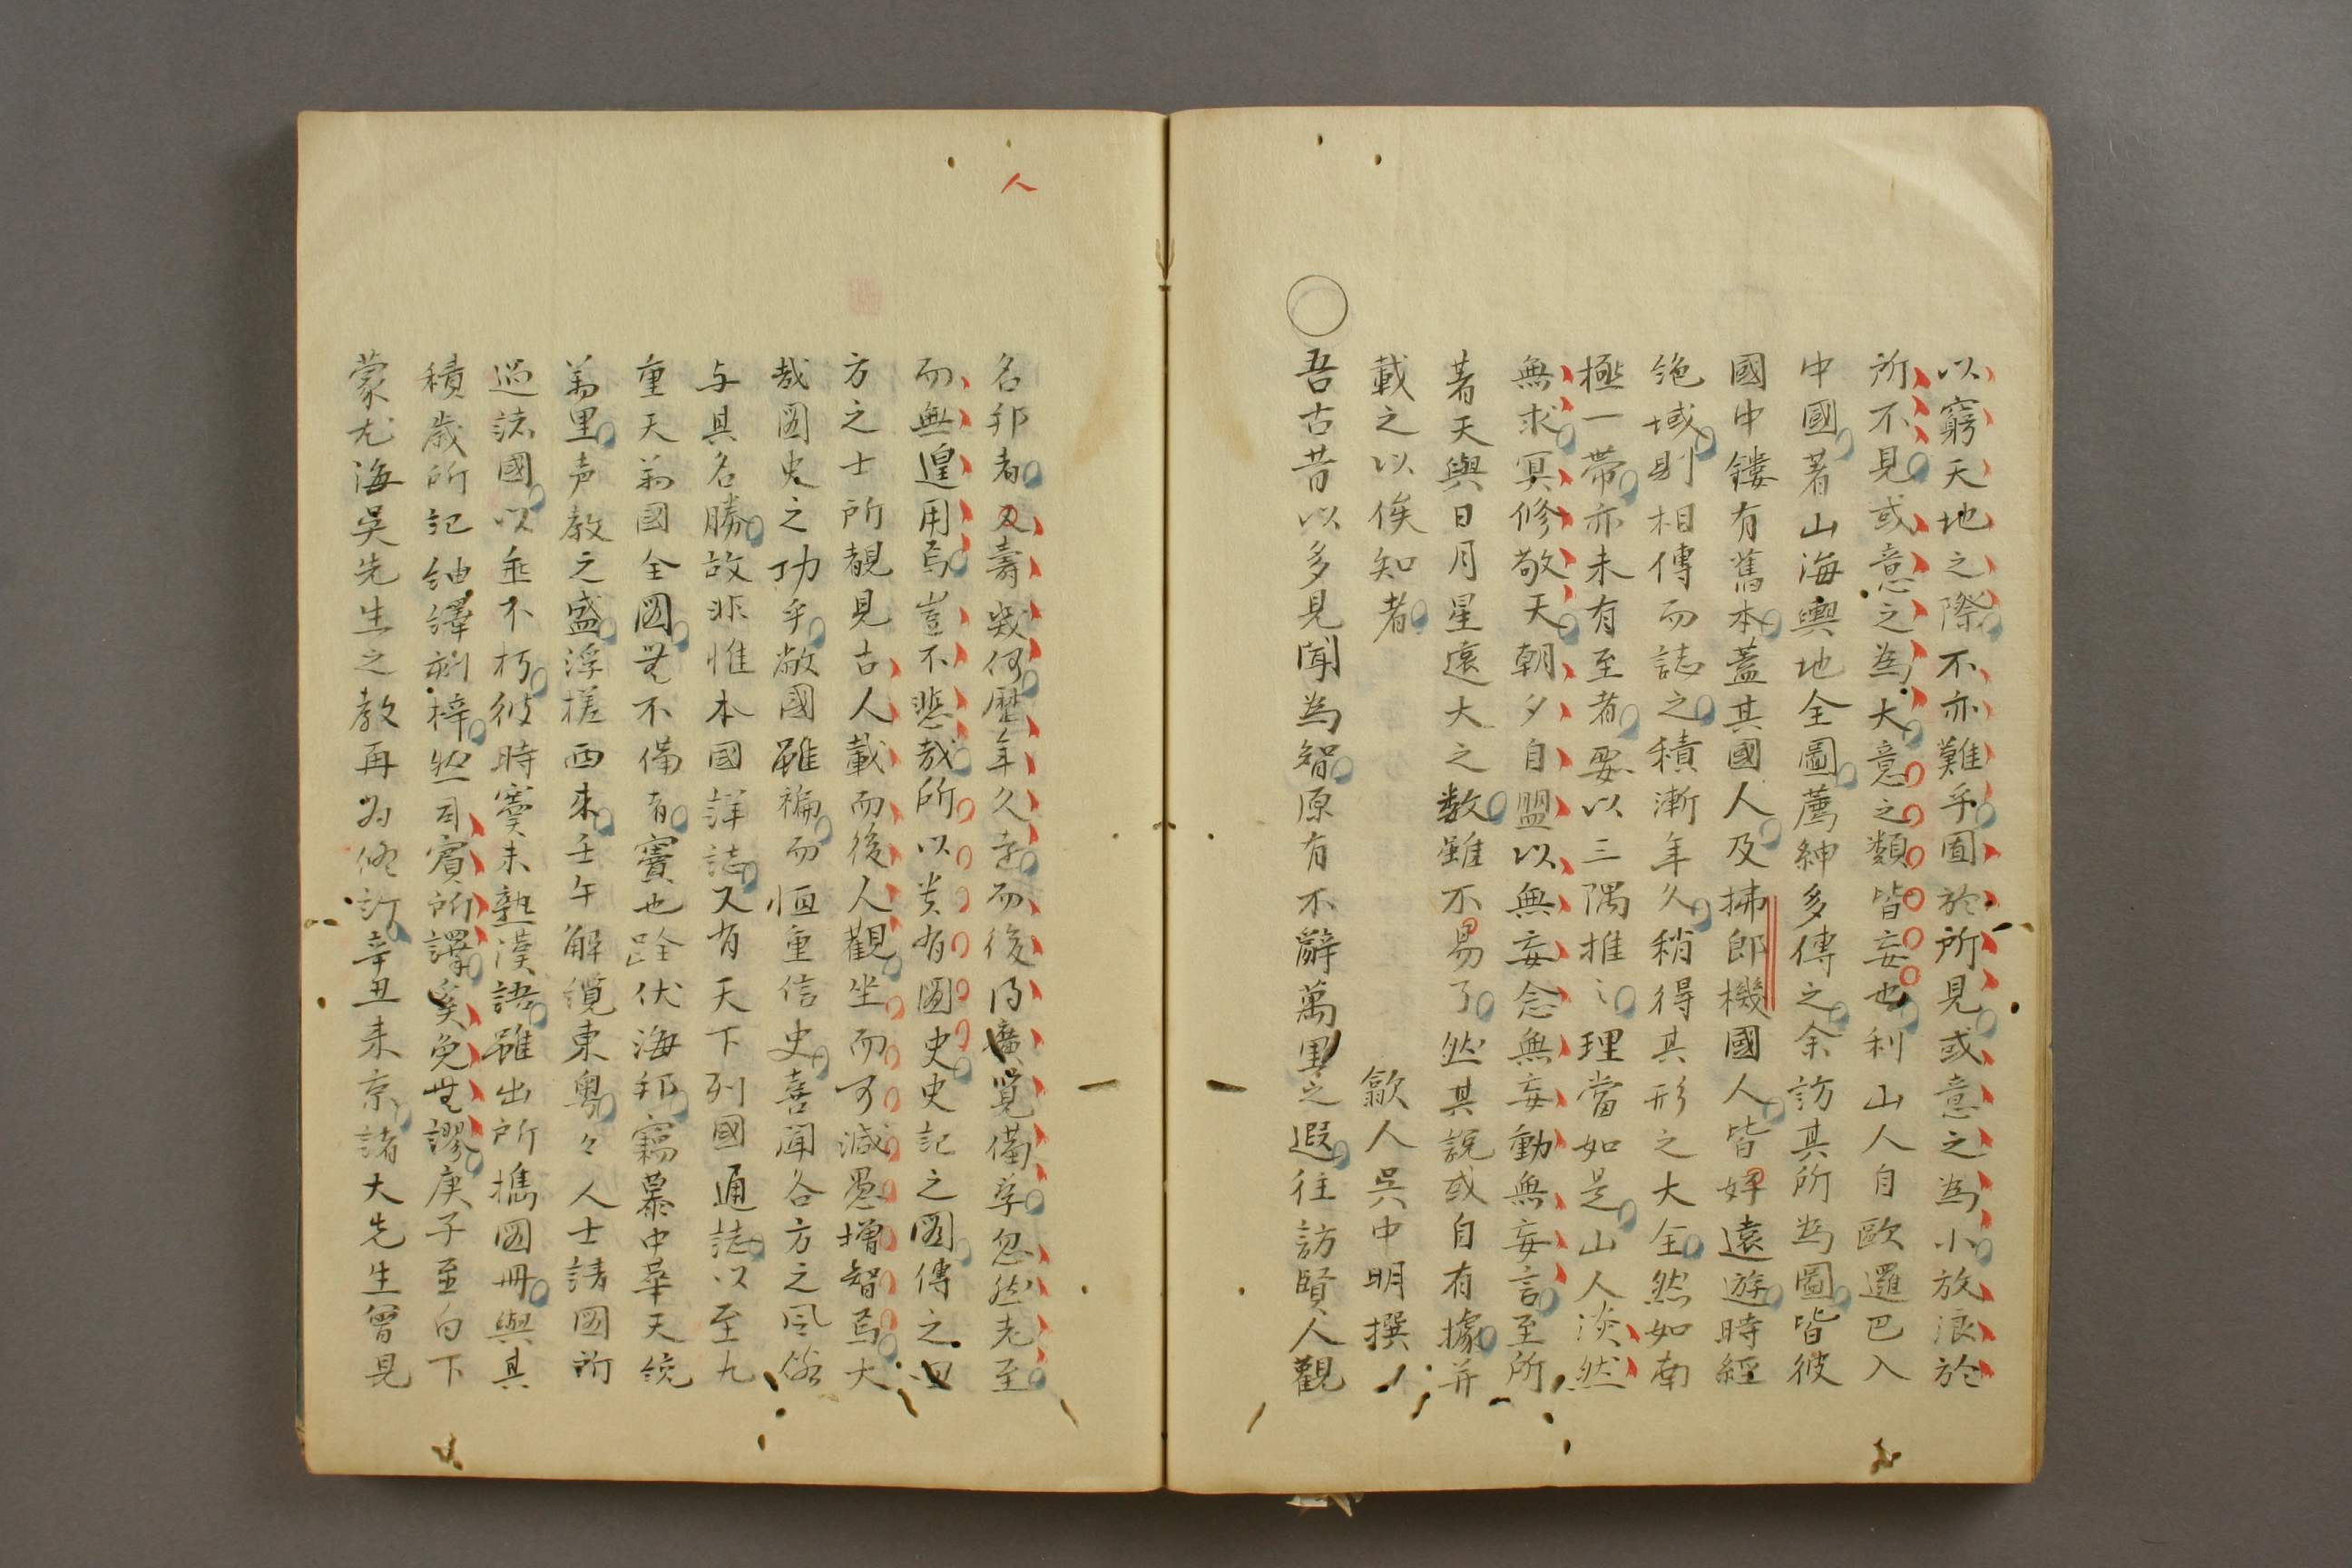 以窮天地之際不亦難乎囿於所見或意之為小放浪於
所不見或意之為大意之類皆妄也利山人自歐邏巴入
中國著山海輿地全圖薦紳多傳之余訪其所為圖皆彼
國中鏤有舊本蓋其國人及拂郎機國人皆好遠遊時經
絶域則相傳而誌之積漸年久稍得其形之大全然如南
極一帶亦未有至者要以三隅推之理當如是山人淡然
無求冥修敬天朝夕自盟以無妄念無妄動無妄言至所
著天與日月星遠大之数雖不易了然其說或自有據并
載之以俟知者 歙人吳中明撰
吾古昔以多見聞為智原有不辭萬里之遐往訪賢人觀
名邦者人壽幾何歷年久遠而後得廣覽備學忽然老至
而無遑用焉豈不悲哉所以貴有圖史史記之圖傳之四
方之士所覩見古人載而後人觀坐而可減愚增智焉大
哉圖史之功乎敝國雖褊而恒重信史喜聞各方之風俗
与其名勝故非惟本國詳誌又有天下列國通誌以至九
重天萬國全圖無不備者竇也跧伏海邦竊慕中華天統
萬里声教之盛浮槎西來壬午解纜東粵々人士請圖所
過諸國以垂不朽彼時竇未熟漢語雖出所攜圖冊與其
積歲所記紬譯刻梓然司賓所譯奚免無謬庚子至白下
蒙左海吳先生之教再为修訂辛丑来京諸大先生曾見